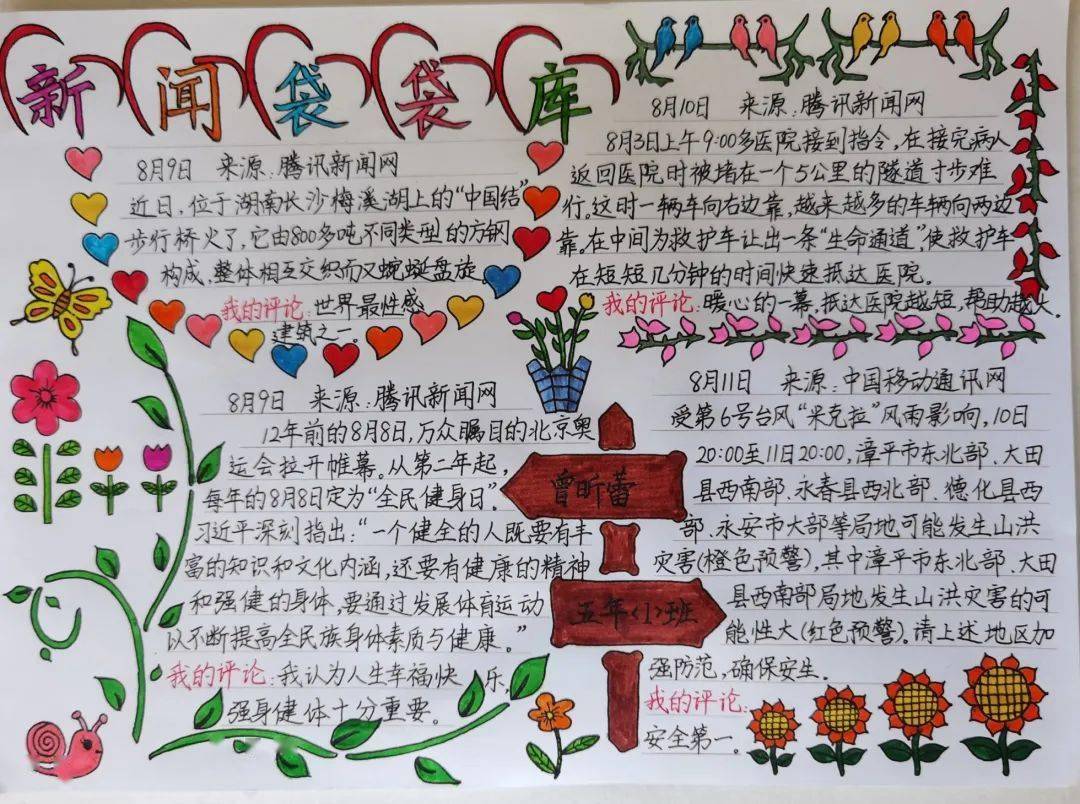 新闻袋袋库
8月9日 来源:腾讯新闻网
近日,位于湖南长沙梅溪湖上的“中国结”
步行桥火了,它由800多吨不同类型的方钢
构成,整体相互交织而又蜿蜒盘旋。
我的评论:世界最性感
建筑之一。
8月10日 来源:腾讯新闻网
8月3日上午9:00多医院接到指令,在接完病人
返回医院时被堵在一个5公里的隧道寸步难
行。这时一辆车向右边靠,越来越多的车辆向两边
靠。在中间为救护车让出一条“生命通道”,使救护车
在短短几分钟的时间快速抵达医院。
我的评论:暖心的一幕,抵达医院越短,帮助越大.
8月9日 来源:腾讯新闻网
12年前的8月8日,万众瞩目的北京奥
运会拉开帷幕。从第二年起,
每年的8月8日定为“全民健身日”。
习近平深刻指出:“一个健全的人既要有丰
富的知识和文化内涵,还要有健康的精神
和强健的身体,要通过发展体育运动
以不断提高全民族身体素质与健康。”
我的评论:我认为人生幸福快乐,
强身健体十分重要。
曾昕蕾
五年<1>班
8月11日 来源:中国移动通讯网
受第6号台风“米克拉”风雨影响,10日
20:00至11日20:00,漳平市东北部、大田
县西南部、永春县西北部、德化县西
部、永安市大部等局地可能发生山洪
灾害(橙色预警),其中漳平市东北部、大田
县西南部局地发生山洪灾害的可
能性大(红色预警)。请上述地区加
强防范,确保安生.
我的评论:
安全第一。